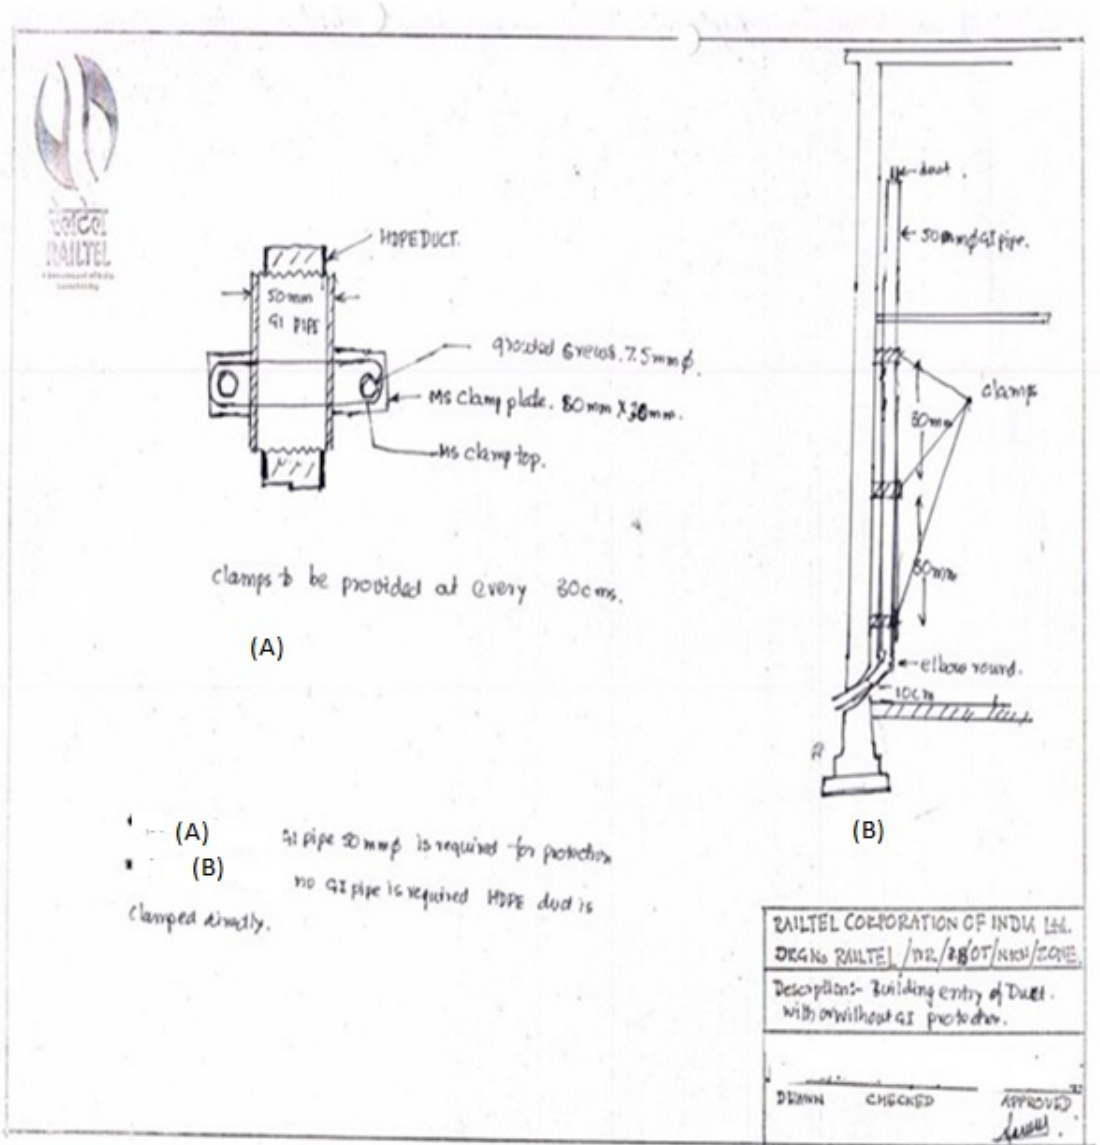 रेलटेल
RAILTEL
HDPE DUCT.
50mm
GI PIPE
grouded Screws. 7.5mmφ.
MS Clamp plate. 80mm X 30mm.
MS clamp top.
Clamps to be provided at every 30cms.
(A)
duct.
50mmφ GI pipe.
clamps
30mm
30mm
elbow round.
10cm
(B)
(A) GI pipe 50mmφ is required for protection
(B) no GI pipe is required HDPE duct is
Clamped directly.
RAILTEL CORPORATION OF INDIA Ltd.
DRG No RAILTEL /NKN/ZONE
Description:- Building entry of Duct.
with or without GI protection.
DRAWN CHECKED APPROVED